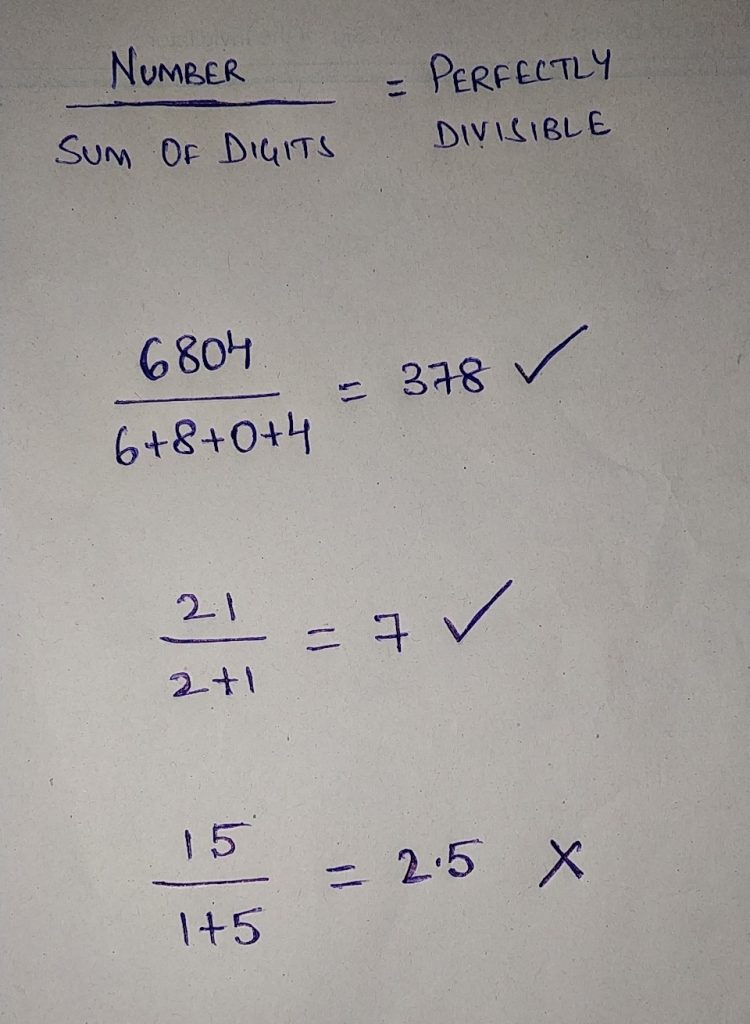 NUMBER
SUM OF DIGITS
= PERFECTLY
DIVISIBLE
6804
6+8+0+4
= 378 ✓
21
2+1
= 7 ✓
15
1+5
= 2.5 X